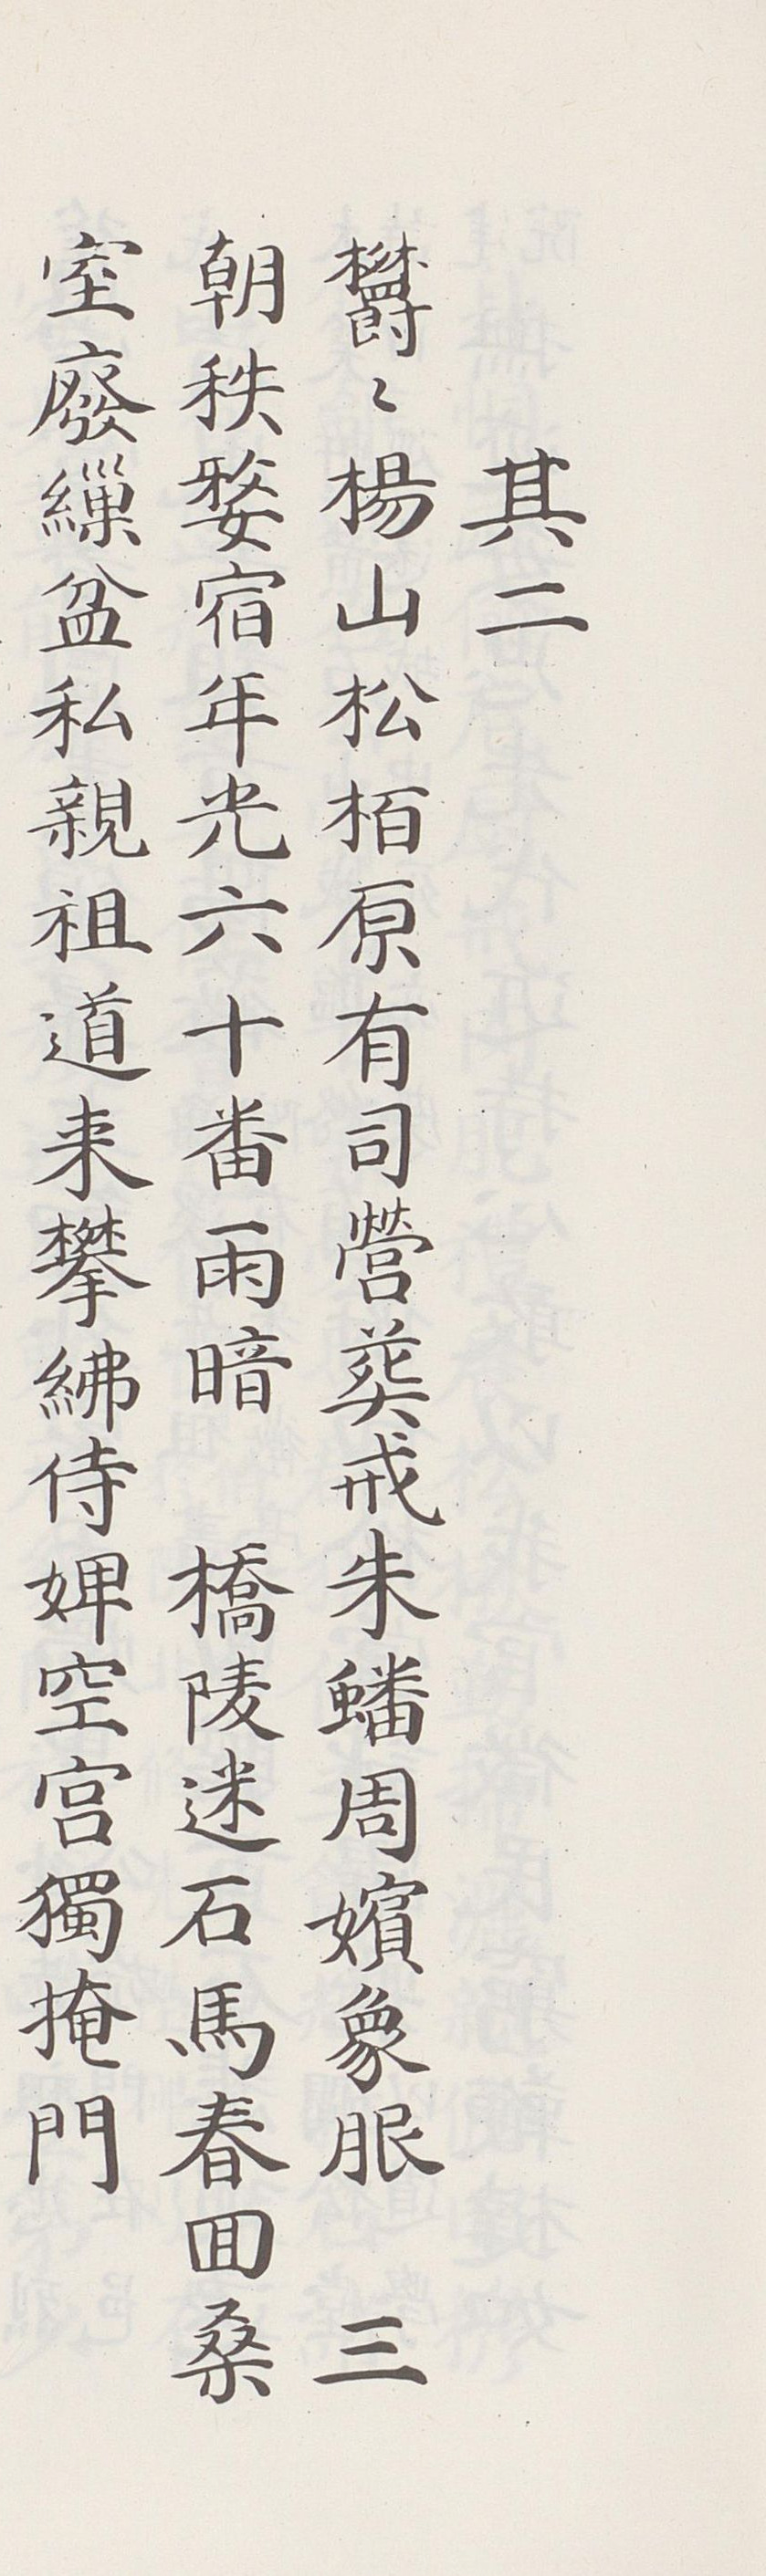 其二
欝〻楊山松栢原有司營葬戒朱蟠周嬪象服 三
朝秩婺宿年光六十番雨暗 橋陵迷石馬春囬桑
室廢繅盆私親祖道来攀紼侍婢空宮獨掩門